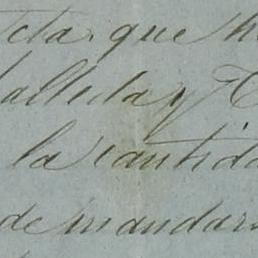 cta. que h
alleda y C
la cantida
de mandar